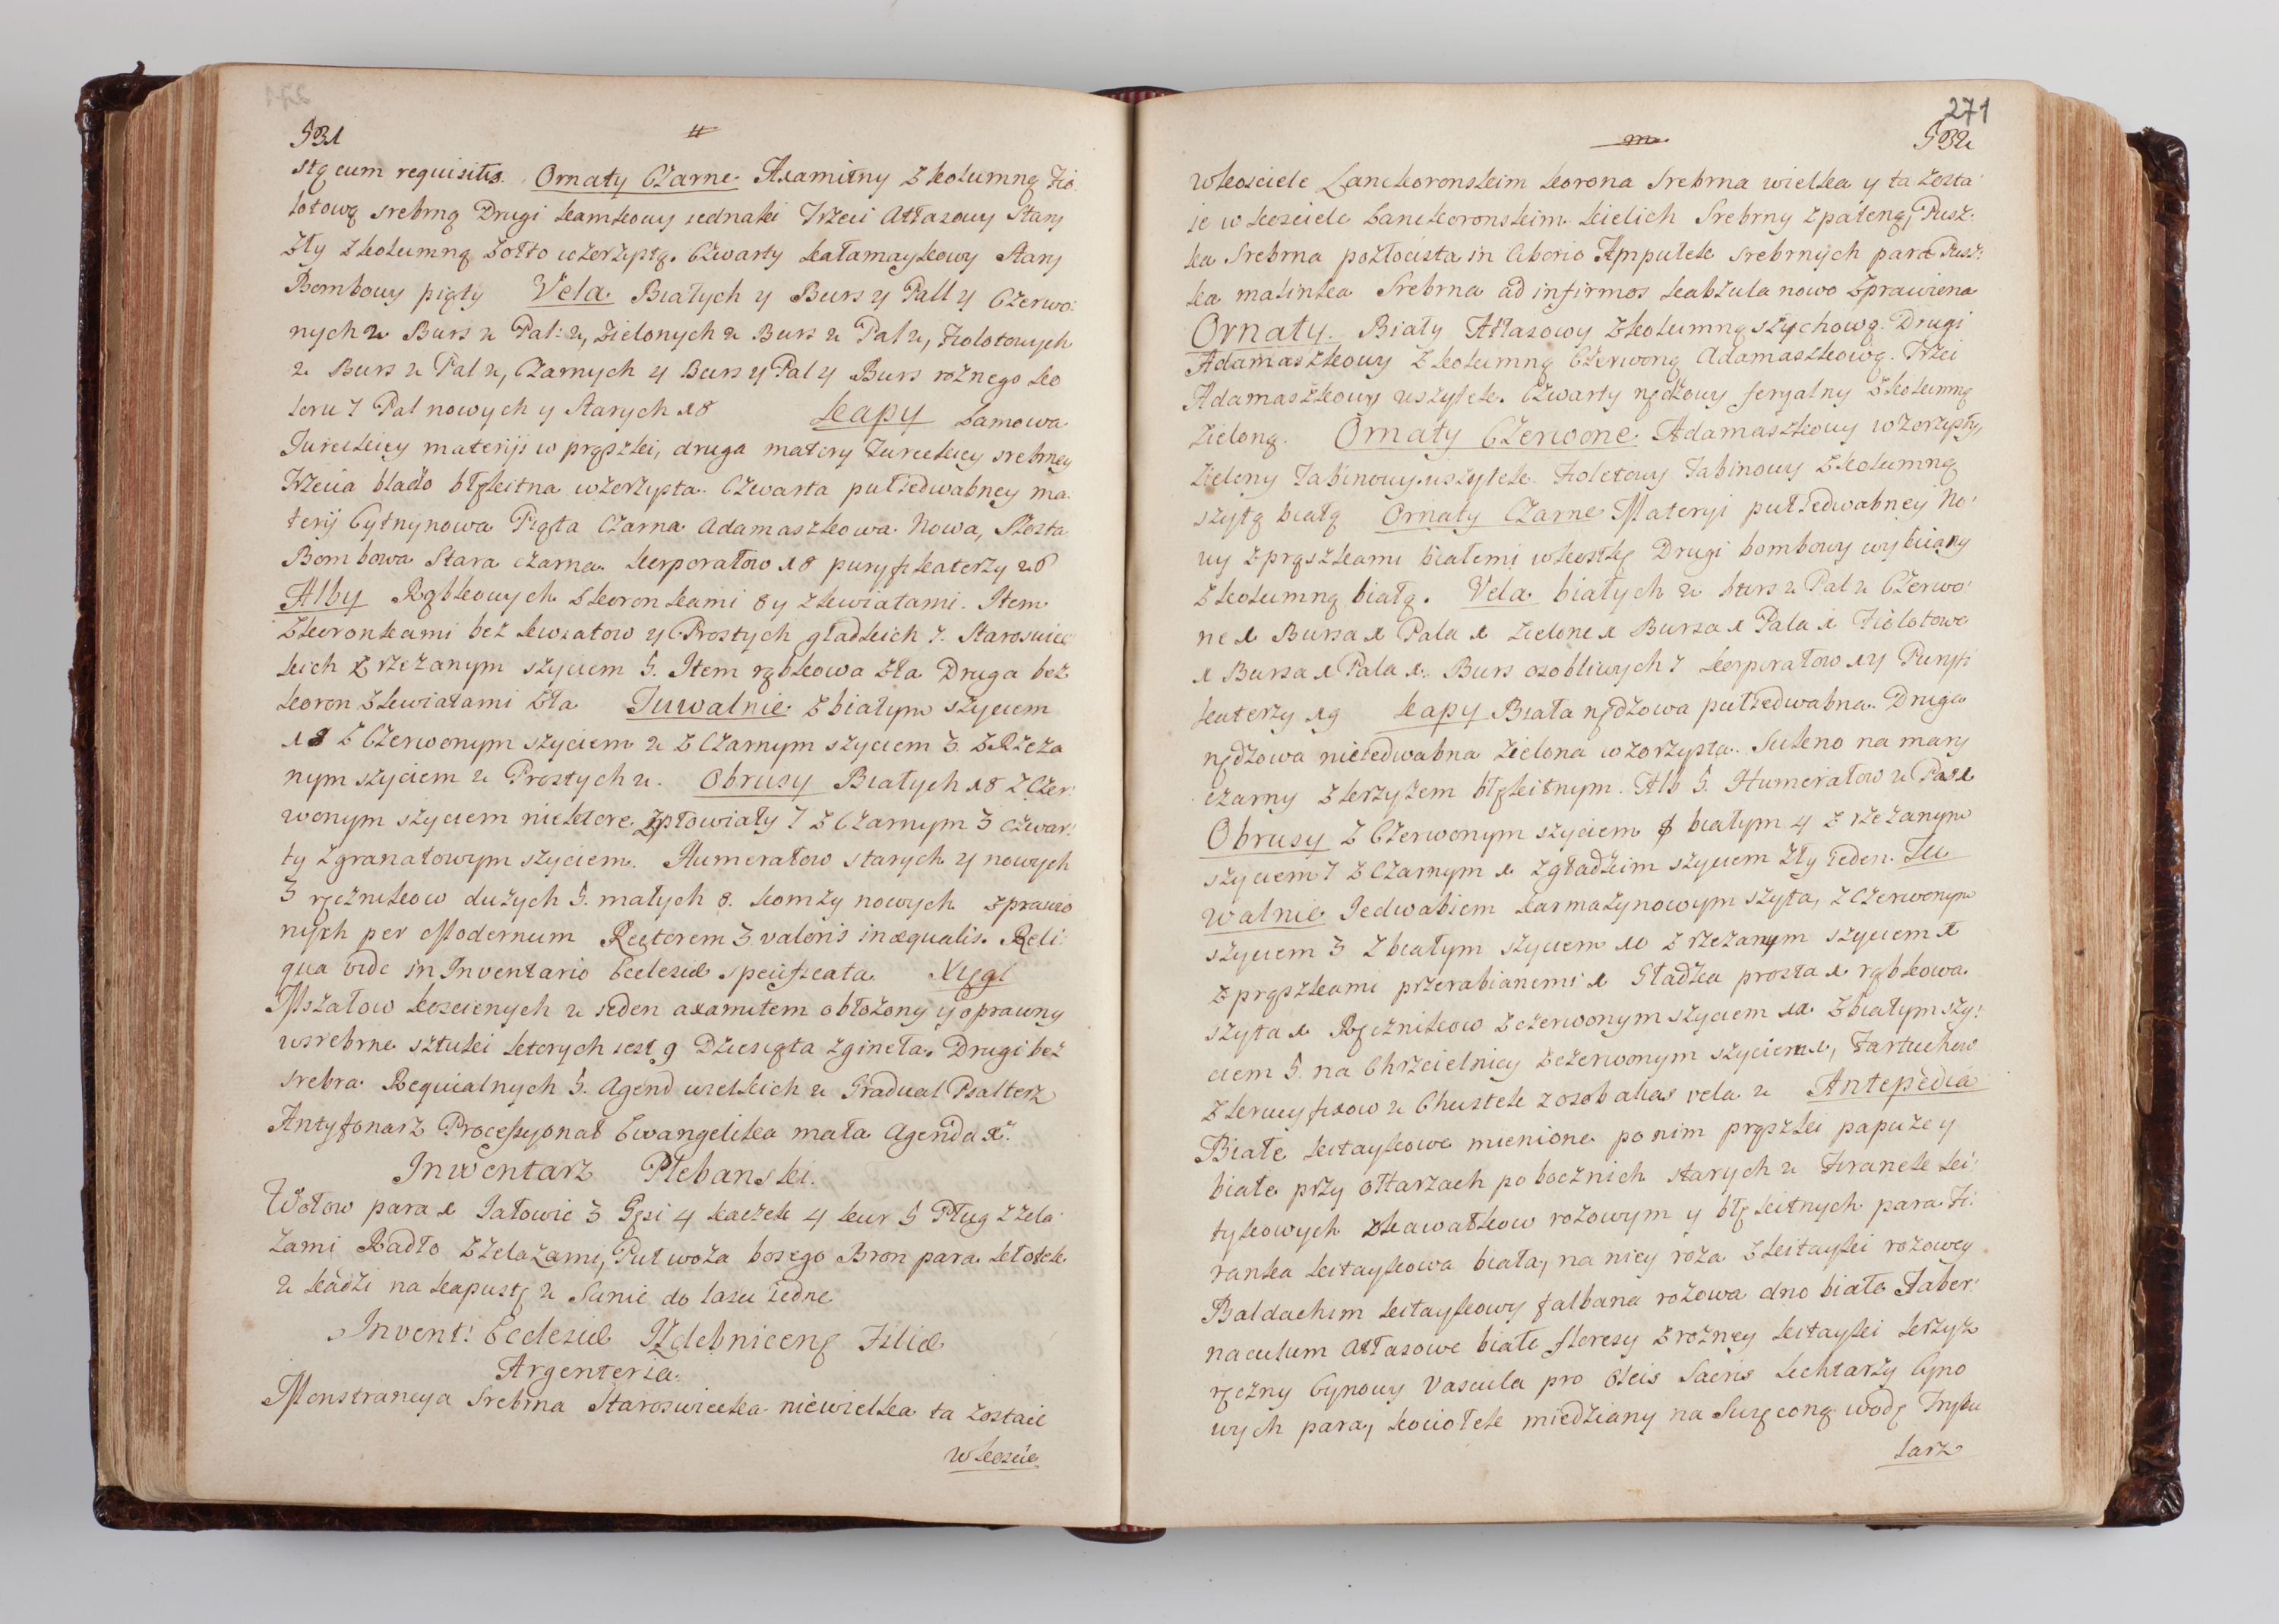 531
stą cum requisitis. Ornaty Czarne. Axamitny z kolumną Fio
lotową srebrną Drugi kamkowy iednaki Trzeci Atłasowy Stary
zły z kolumną żołto wzorzystą. Czwarty kałamaykowy Stary
Bombowy piąty Vela. Białych 4 Burs 4 Pall 4 Czerwo:
nych 2 Burs 2 Pal: 2, Zielonych 2 Burs 2 Pal 2, Fiolotowych
2 Burs 2 Pal 2, Czarnych 4 Burs 4 Pal 4 Burs rożnego ko
loru 7 Pal nowych y Starych 18 Kapy Lamowa
Tureckiey materiji w prążki, druga matery Tureckiey srebrney
Trzecia blado błękitna wzorzysta. Czwarta pułiedwabney ma:
terij Cytrynowa Piąta Czarna Adamaszkowa Nowa, Szosta
Bombowa Stara czarna. Korporałow 18 puryfikaterzy 26
Alby Rąbkowych z koronkami 8 y z kwiatami. Item
z koronkami bez kwiatow 4 Prostych gładkich 7. Staroswiec
kich z rzezanym szyciem 5. Item rąbkowa zła Druga bez
koron z kwiatami zła Tuwalnie. z białym szyciem
18 z Czerwonym szyciem 2 z Czarnym szyciem 3. z Rzeza
nym szyciem 2 Prostych 2. Obrusy Białych 18 z Czer:
wonym szyciem niektore zpłowiały 7 z Czarnym 3 czwar:
ty z granatowym szyciem. Humerałow starych y nowych
3 ręcznikow dużych 5. małych 8. komży nowych zprawio
nych per Modernum Rectorem 3. valoris inæqualis. Reli:
qua vide in Inventario Ecclesiæ specificata. Xięgi
Mszałow koscienych 2 ieden axamitem obłożony y oprawny
w srebrne sztuki ktorych iest 9 Dziesiąta zgineła. Drugi bez
srebra. Requialnych 5. Agend wielkich 2 Gradual Psalterz
Antyfonarz Processyonał Ewangelika mała Agenda 1.
Inwentarz Plebanski.
Wołow para 1 Jałowic 3 Gęsi 4 kaczek 4 kur 5 Pług z żela
zami Radło z żelazami, Puł woza bosego Bron para. kłotek
2 kadzi na kapustę 2 Sanie do lasu iedne
Invent: Ecclesiæ Izdebnicenę Filiæ
Argenteria.
Monstrancya Srebrna Staroswiecka niewielka ta zostaie
w koscie
271
532
w kosciele Lanckoronskim korona Srebrna wielka y ta zosta
ie w kosciele Lanckoronskim. kielich Srebrny z pateną, Pusz:
ka Srebrna pozłocista in Ciborio Ampułek srebrnych para Pusz:
ka malinka Srebrna ad infirmos kabzula nowo zprawiona
Ornaty. Biały Atłasowy z kolumną szychową. Drugi
Adamaszkowy z kolumną Czerwoną Adamaszkową. Trzei
Adamaszkowy uszytek. Czwarty nędzowy feryalny z kolumną
zieloną. Ornaty Czerwone. Adamaszkowy wzorzysty,
Zielony Tabinowy uszytek. Fioletowy Tabinowy z kolumną
szytą białą Ornaty Czarne Materyi pułiedwabney No:
wy z prązkami białemi w kostkę Drugi bombowy wybiiany
z kolumną białą. Vela białych 2 burs 2 Pal 2 Czerwo:
ne 1 Bursa 1 Pala 1 Zielone 1 Bursa 1 Pala 1 Fiolotowe
1 Bursa 1 Pala 1. Burs osobliwych 7 korporałow 14 Puryfi
katerzy 19 Kapy Biała nędzowa pułiedwabna. Druga
nędzowa nieiedwabna zielona wzorzysta. Sukno na mary
czarny z krzyżem błękitnym. Alb 5. Humerałow 2 Pas 1
Obrusy z Czerwonym szyciem białym 4 z rzezanym
szyciem 7 z Czarnym 1 z gładkim szyciem zły ieden. Tu
walnie Jedwabiem karmazynowym szyta, z Czerwonym
szyciem 3 z białym szyciem 10 z rzezanym szyciem 1
z prązkami przerabianemi 1 Gładka prosta 1 rąbkowa
szyta 1 Ręcznikow z czerwonym szyciem 11 z białym szy:
ciem 5. na Chrzcielnicy z czerwonym szyciem 1, Fartuchow
z krucyfixow 2 Chustek z osob alias vela 2 Antepedia
Białe kitaykowe mienione po nim prązki papuze y
białe przy ołtarzach pobocznich starych 2 Firanek ki:
tykowych z kawałkow rożowym y błękitnych para. Fi:
ranka kitaykowa biała, na niey roża z kitayki rożowey
Baldachim kitaykowy falbana rożowa dno białe Taber:
naculum Atłasowe białe floresy z rożney kitayki krzyz
ręczny Cynowy Vascula pro Oleis Sacris Lichtarzy Cyno
wych para, kociołek miedziany na Swięconą wodę Trybu
larz